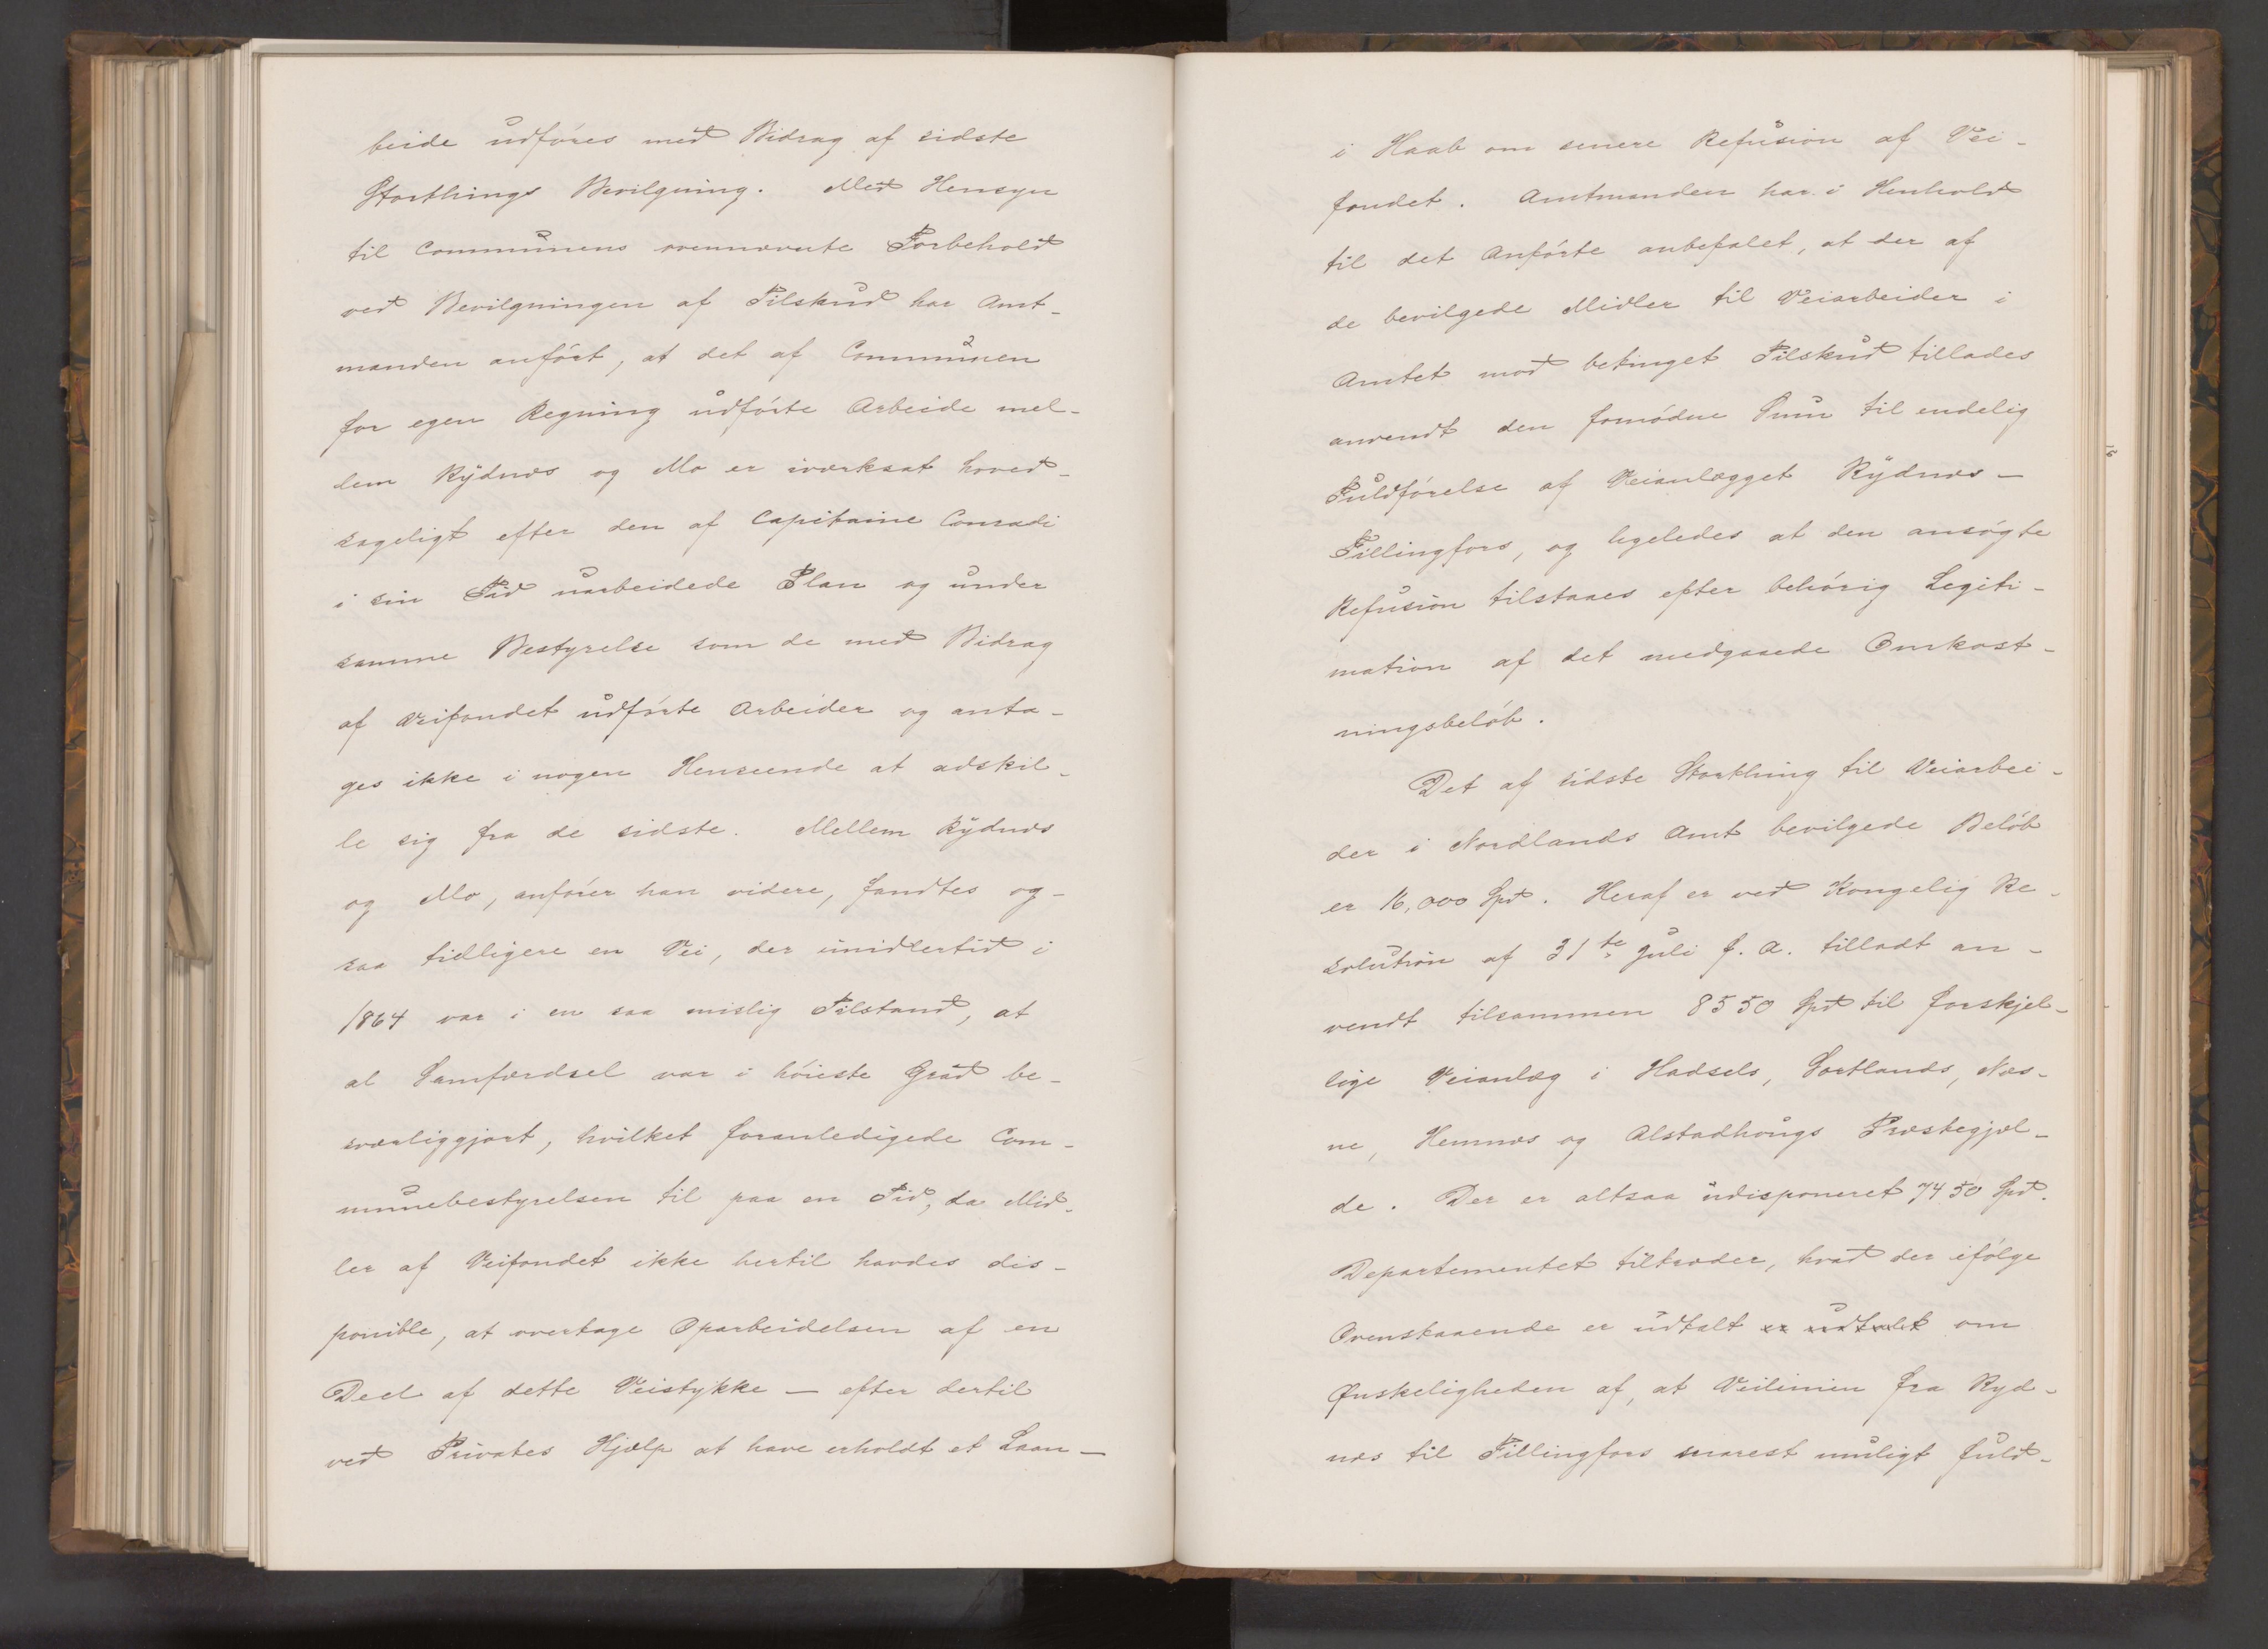 beide udføres med Bidrag af sidste
Storthings Bevilgning. Med Hensyn
til Communens ovennævnte Forbehold
ved Bevilgningen af Tilskud har Amt-
manden anført, at det af Communen
for egen Regning udførte Arbeide mel-
lem Rydnæs og Mo er iværksat hoved-
sageligt efter den af Capitaine Conradi
i sin Tid uarbeidede Plan og under
samme Bestyrelse som de med Bidrag
af Veifondet udførte Arbeider og anta-
ges ikke i nogen Henseende at adskil-
le sig fra de sidste. Mellem Rydnæs
og Mo, anfører han videre, fandtes og-
saa tidligere en Vei, der imidlertid i
1864 var i en saa mislig Tilstand, at
al Samfærdsel var i høieste Grad be-
sværliggjort, hvilket foranledigede Com-
munebestyrelsen til paa en Tid, da Mid-
ler af Veifondet ikke hertil havdes dis-
ponible, at overtage Oparbeidelsen af en
Deel af dette Veistykke — efter dertil
ved Privates Hjælp at have erholdt et Laan —
i Haab om senere Refusion af Vei-
fondet. Amtmanden har i Henhold
til det Anførte anbefalet, at der af
de bevilgede Midler til Veiarbeider i
Amtet mod betinget Tilskud tillades
anvendt den fornødne Sum til endelig
Fuldførelse af Veianlægget Rydnæs —
Fillingfors, og ligeledes at den ansøgte
Refusion tilstaaes efter behørig Legiti-
mation af det medgaaede Omkost-
ningsbeløb.
Det af sidste Storthing til Veiarbei-
der i Nordlands Amt bevilgede Beløb
er 16,000 Spd. Heraf er ved Kongelig Re-
solution af 31te Juli f. A. tilladt an-
vendt tilsammen 8550 Spd til forskjel-
lige Veianlæg i Hadsels, Sortlands, Næs-
ne, Hemnæs og Alstadhougs Præstegjæl-
de. Der er altsaa udisponeret 7450 Spd.
Departementet tiltræder, hvad der ifølge
Ovenstaaende er udtalt er udtalt om
Ønskeligheden af, at Veilinien fra Ryd-
næs til Fillingfors snarest muligt fuld-